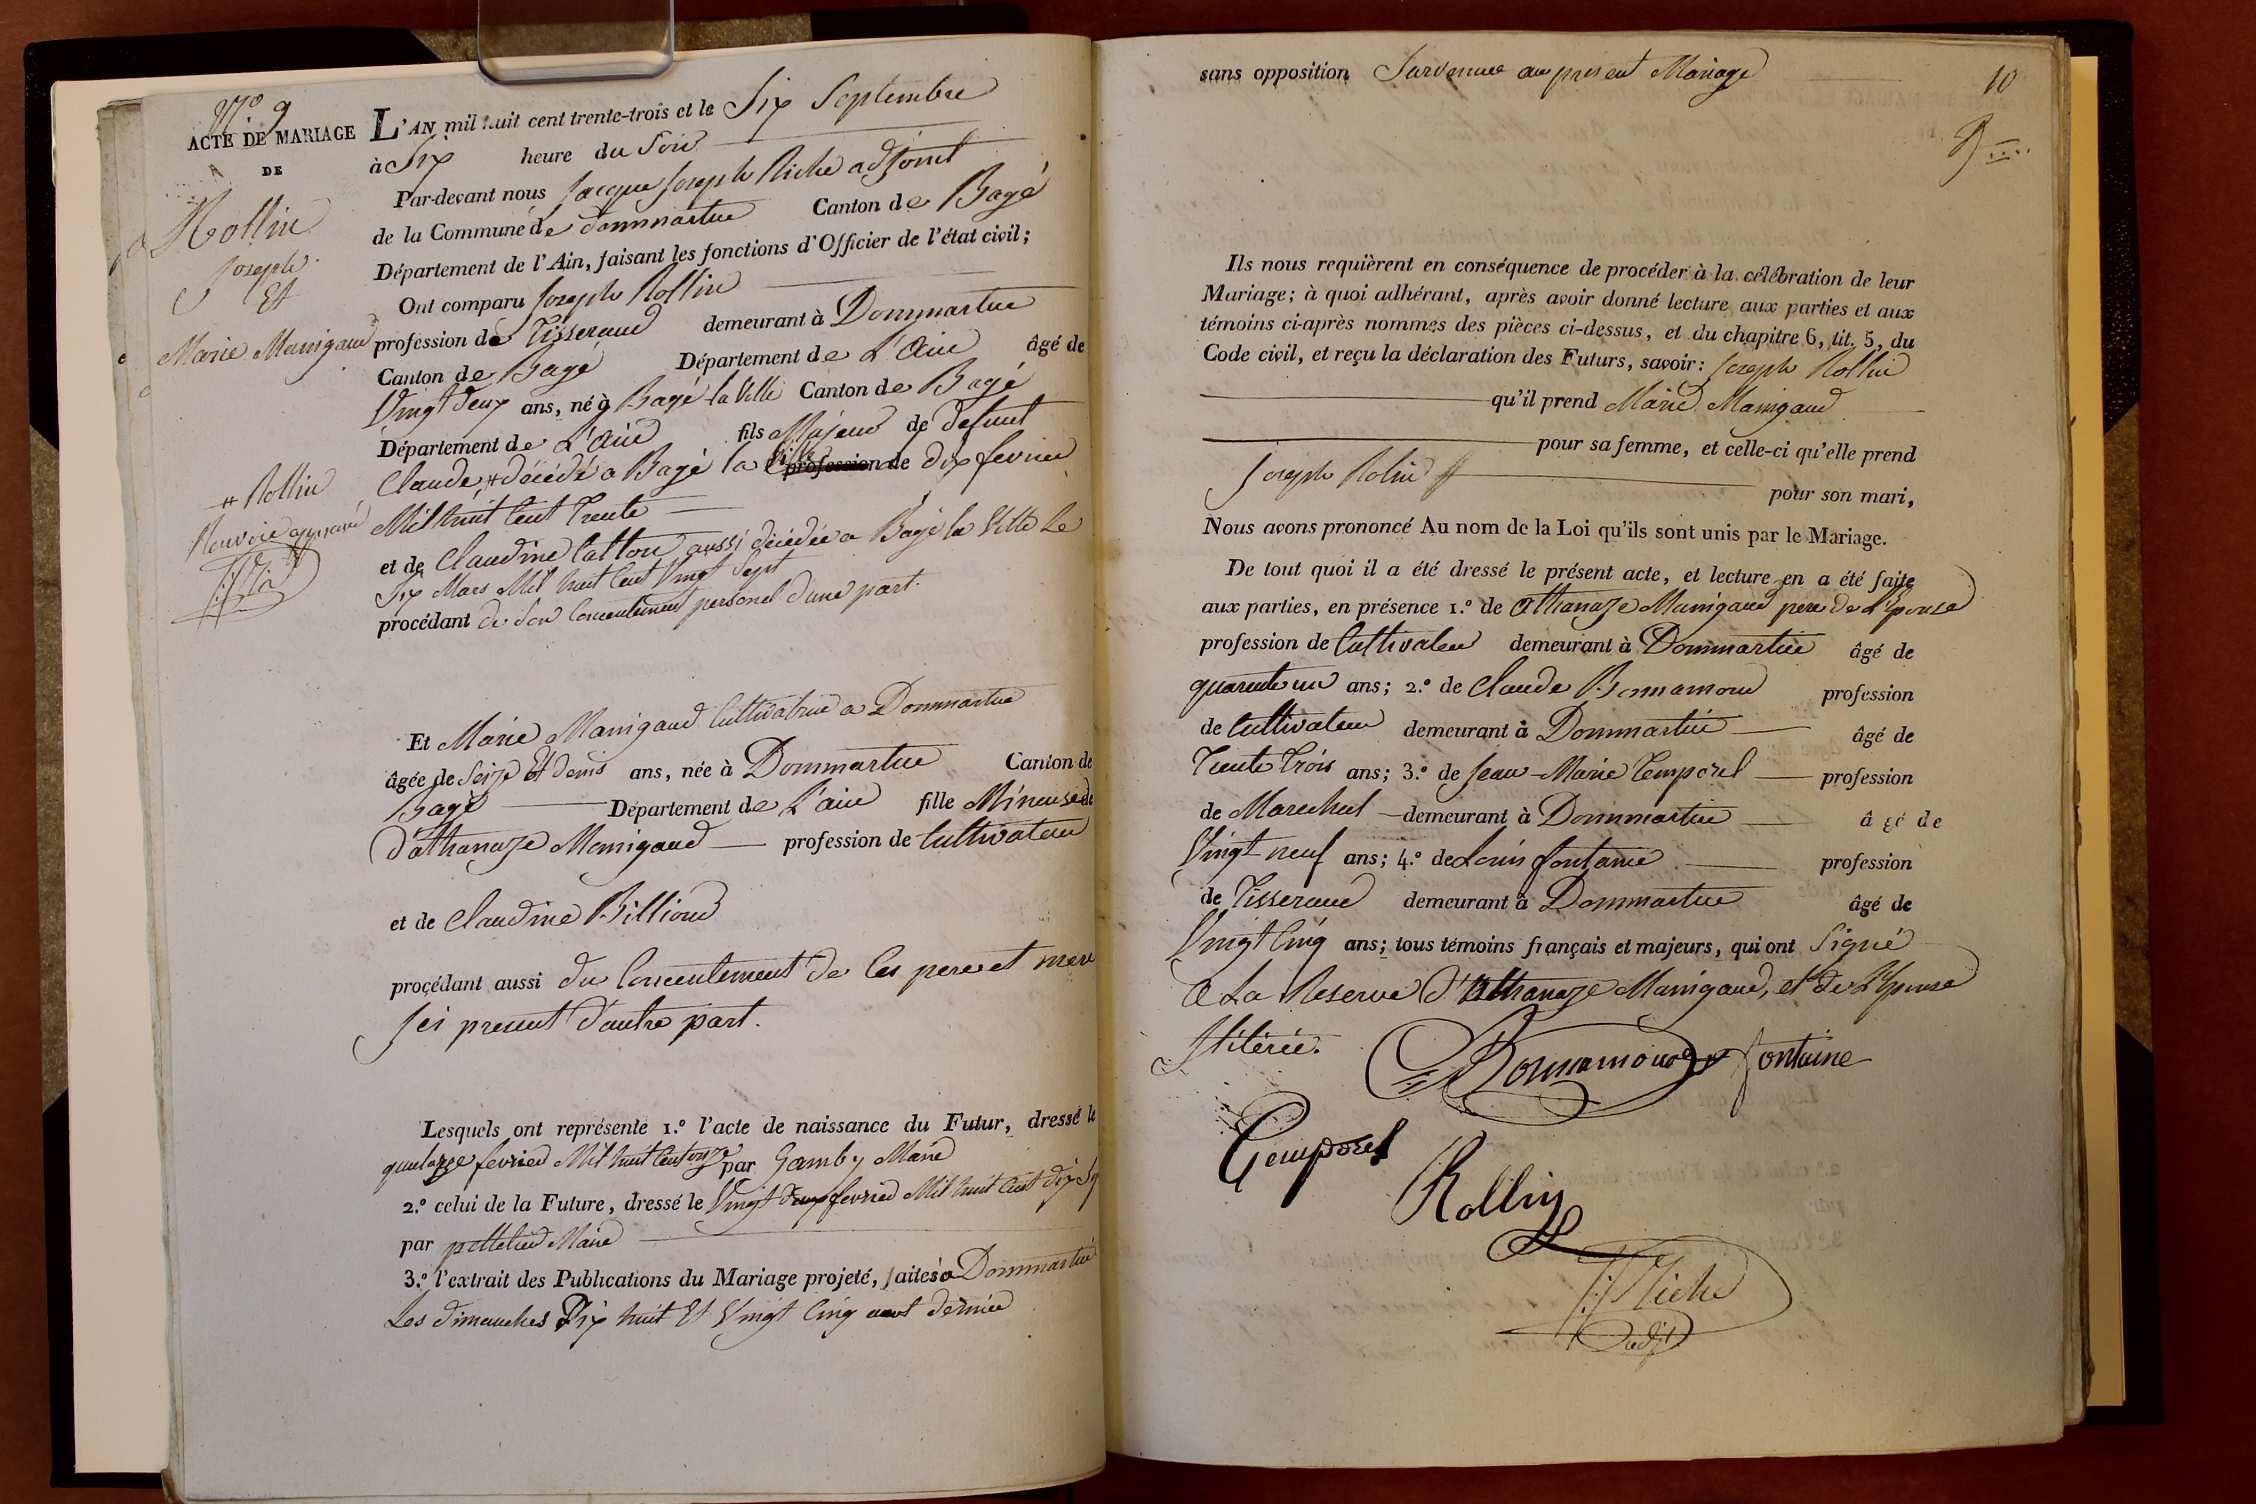 N.o 9
ACTE DE MARIAGE
DE
Rollin
Joseph
Et
Marie Manigaud
# Rollin
Renvoie approuvé
L'AN mil huit cent trente-trois et le Six Septembre
à Six heure du Soir
Par-devant nous Jacque Joseph Riche adjoint
de la Commune de dommartin Canton de Bagé
Département de l'Ain, faisant les fonctions d'Officier de l'état civil;
Ont comparu Joseph Rollin
profession de Tisserand demeurant à Dommartin
Canton de Bagé Département de L'Ain âgé de
Vingt deux ans, né à Bagé la Ville Canton de Bagé
Département de L'ain fils Majeur de défunt
Claude # décédé a Bagé la Ville profession de dix fevrier
Mil huit Cent Trente
et de Claudine Catton aussi décédée a Bagé la Ville Le
Six Mars Mil huit Cent Vingt Sept
procédant de Son Concentement personel d'une part.
Et Marie Manigaud Cultivatrice a Dommartin
âgée de Seize Et demis ans, née à Dommartin Canton de
Bagé Département de L'ain fille Mineuse de
D'athanaze Manigaud profession de Cultivateur
et de Claudine Billioud
proçédant aussi du Concentement de Ces pere et mere
Jci present d'autre part.
Lesquels ont représenté 1.o l'acte de naissance du Futur, dressé le
quatorze fevrier Mil huit Cent onze par Gamby Maire
2.o celui de la Future, dressé le Vingt deux fevrier Mil huit Cent dix Sept
par pelletier Maire
3.o l'extrait des Publications du Mariage projeté, faites a Dommartin
Les dimanches Dix huit Et Vingt Cinq aout dernier
sans opposition Survenue au present Mariage
10
Ils nous requièrent en conséquence de procéder à la célébration de leur
Mariage; à quoi adhérant, après avoir donné lecture aux parties et aux
témoins ci-après nommés des pièces ci-dessus, et du chapitre 6, tit. 5, du
Code civil, et reçu la déclaration des Futurs, savoir: Joseph Rollin
qu'il prend Marie Manigaud
pour sa femme, et celle-ci qu'elle prend
Joseph Rolin
pour son mari,
Nous avons prononcé Au nom de la Loi qu'ils sont unis par le Mariage.
De tout quoi il a été dressé le présent acte, et lecture en a été faite
aux parties, en présence 1.o de athanaze Manigaud pere de L'Epouse
profession de Cultivateur demeurant à Dommartin âgé de
quarente un ans; 2.o de Claude Bonnamour profession
de Cultivateur demeurant à Dommartin âgé de
Trente Trois ans; 3.o de Jean-Marie Temporel profession
de Marechal demeurant à Dommartin âgé de
Vingt neuf ans; 4.o de Louis fontaine profession
de Tisserand demeurant à Dommartin âgé de
Vingt Cinq ans; tous témoins français et majeurs, qui ont Signé
a La Reserve d'Athanaze Manigaud, et de L'Epouse
Jlitérée.
Bonnamour fontaine
Temporel
Rollin
JJ Riche
adjt